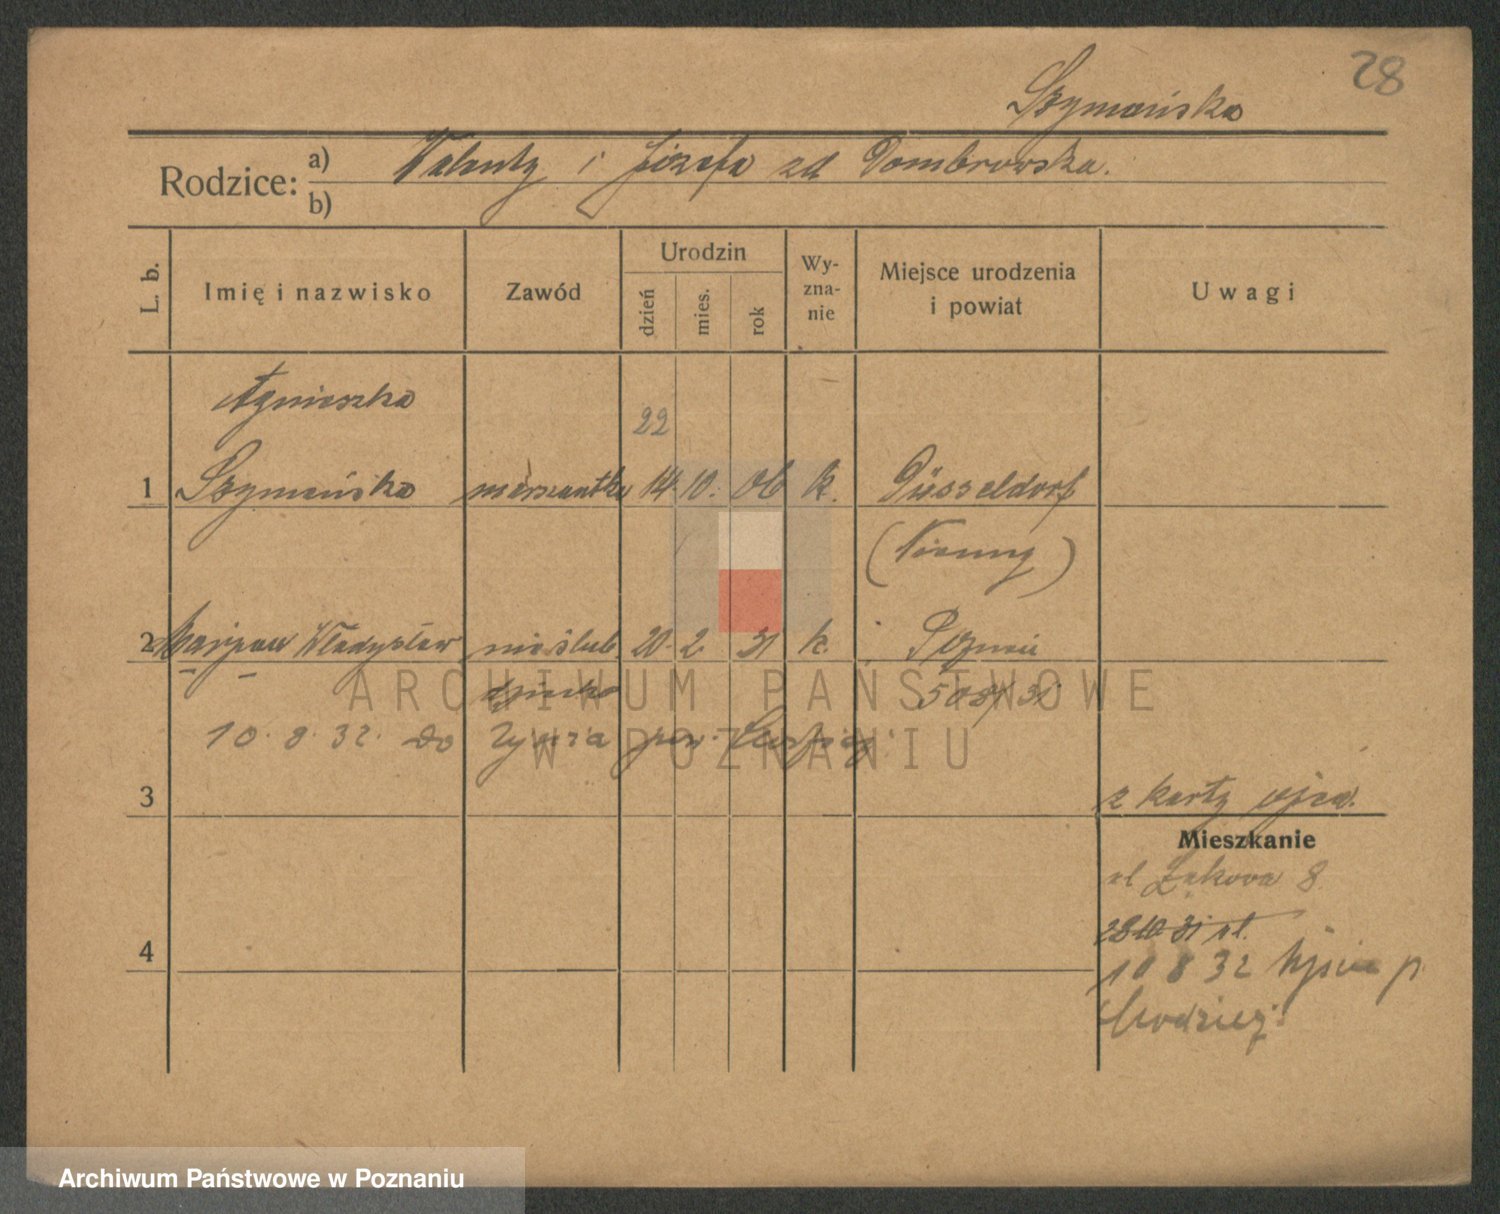 28
Szymańska
Rodzice:
a) Walenty i Józefa zd Dombrowska.
b)
L. b.
Imię i nazwisko
Zawód
Urodzin
dzień
mies.
rok
Wy-
zna-
nie
Miejsce urodzenia
i powiat
Uwagi
Agnieszka
22
1 Szymańska 14. 10. 06 k. Düsseldorf
(Niemcy)
2 Marjan Władysław nieślub. 20. 2. 31 k. Poznań
dziecko 508/31
10. 8. 32. do pow.
3
z karty ojca.
Mieszkanie
ul Łąkowa 8
28 10 31 ul.
4
10 8 32 p.
Chodzież
ARCHIWUM PAŃSTWOWE
W POZNANIU
Archiwum Państwowe w Poznaniu